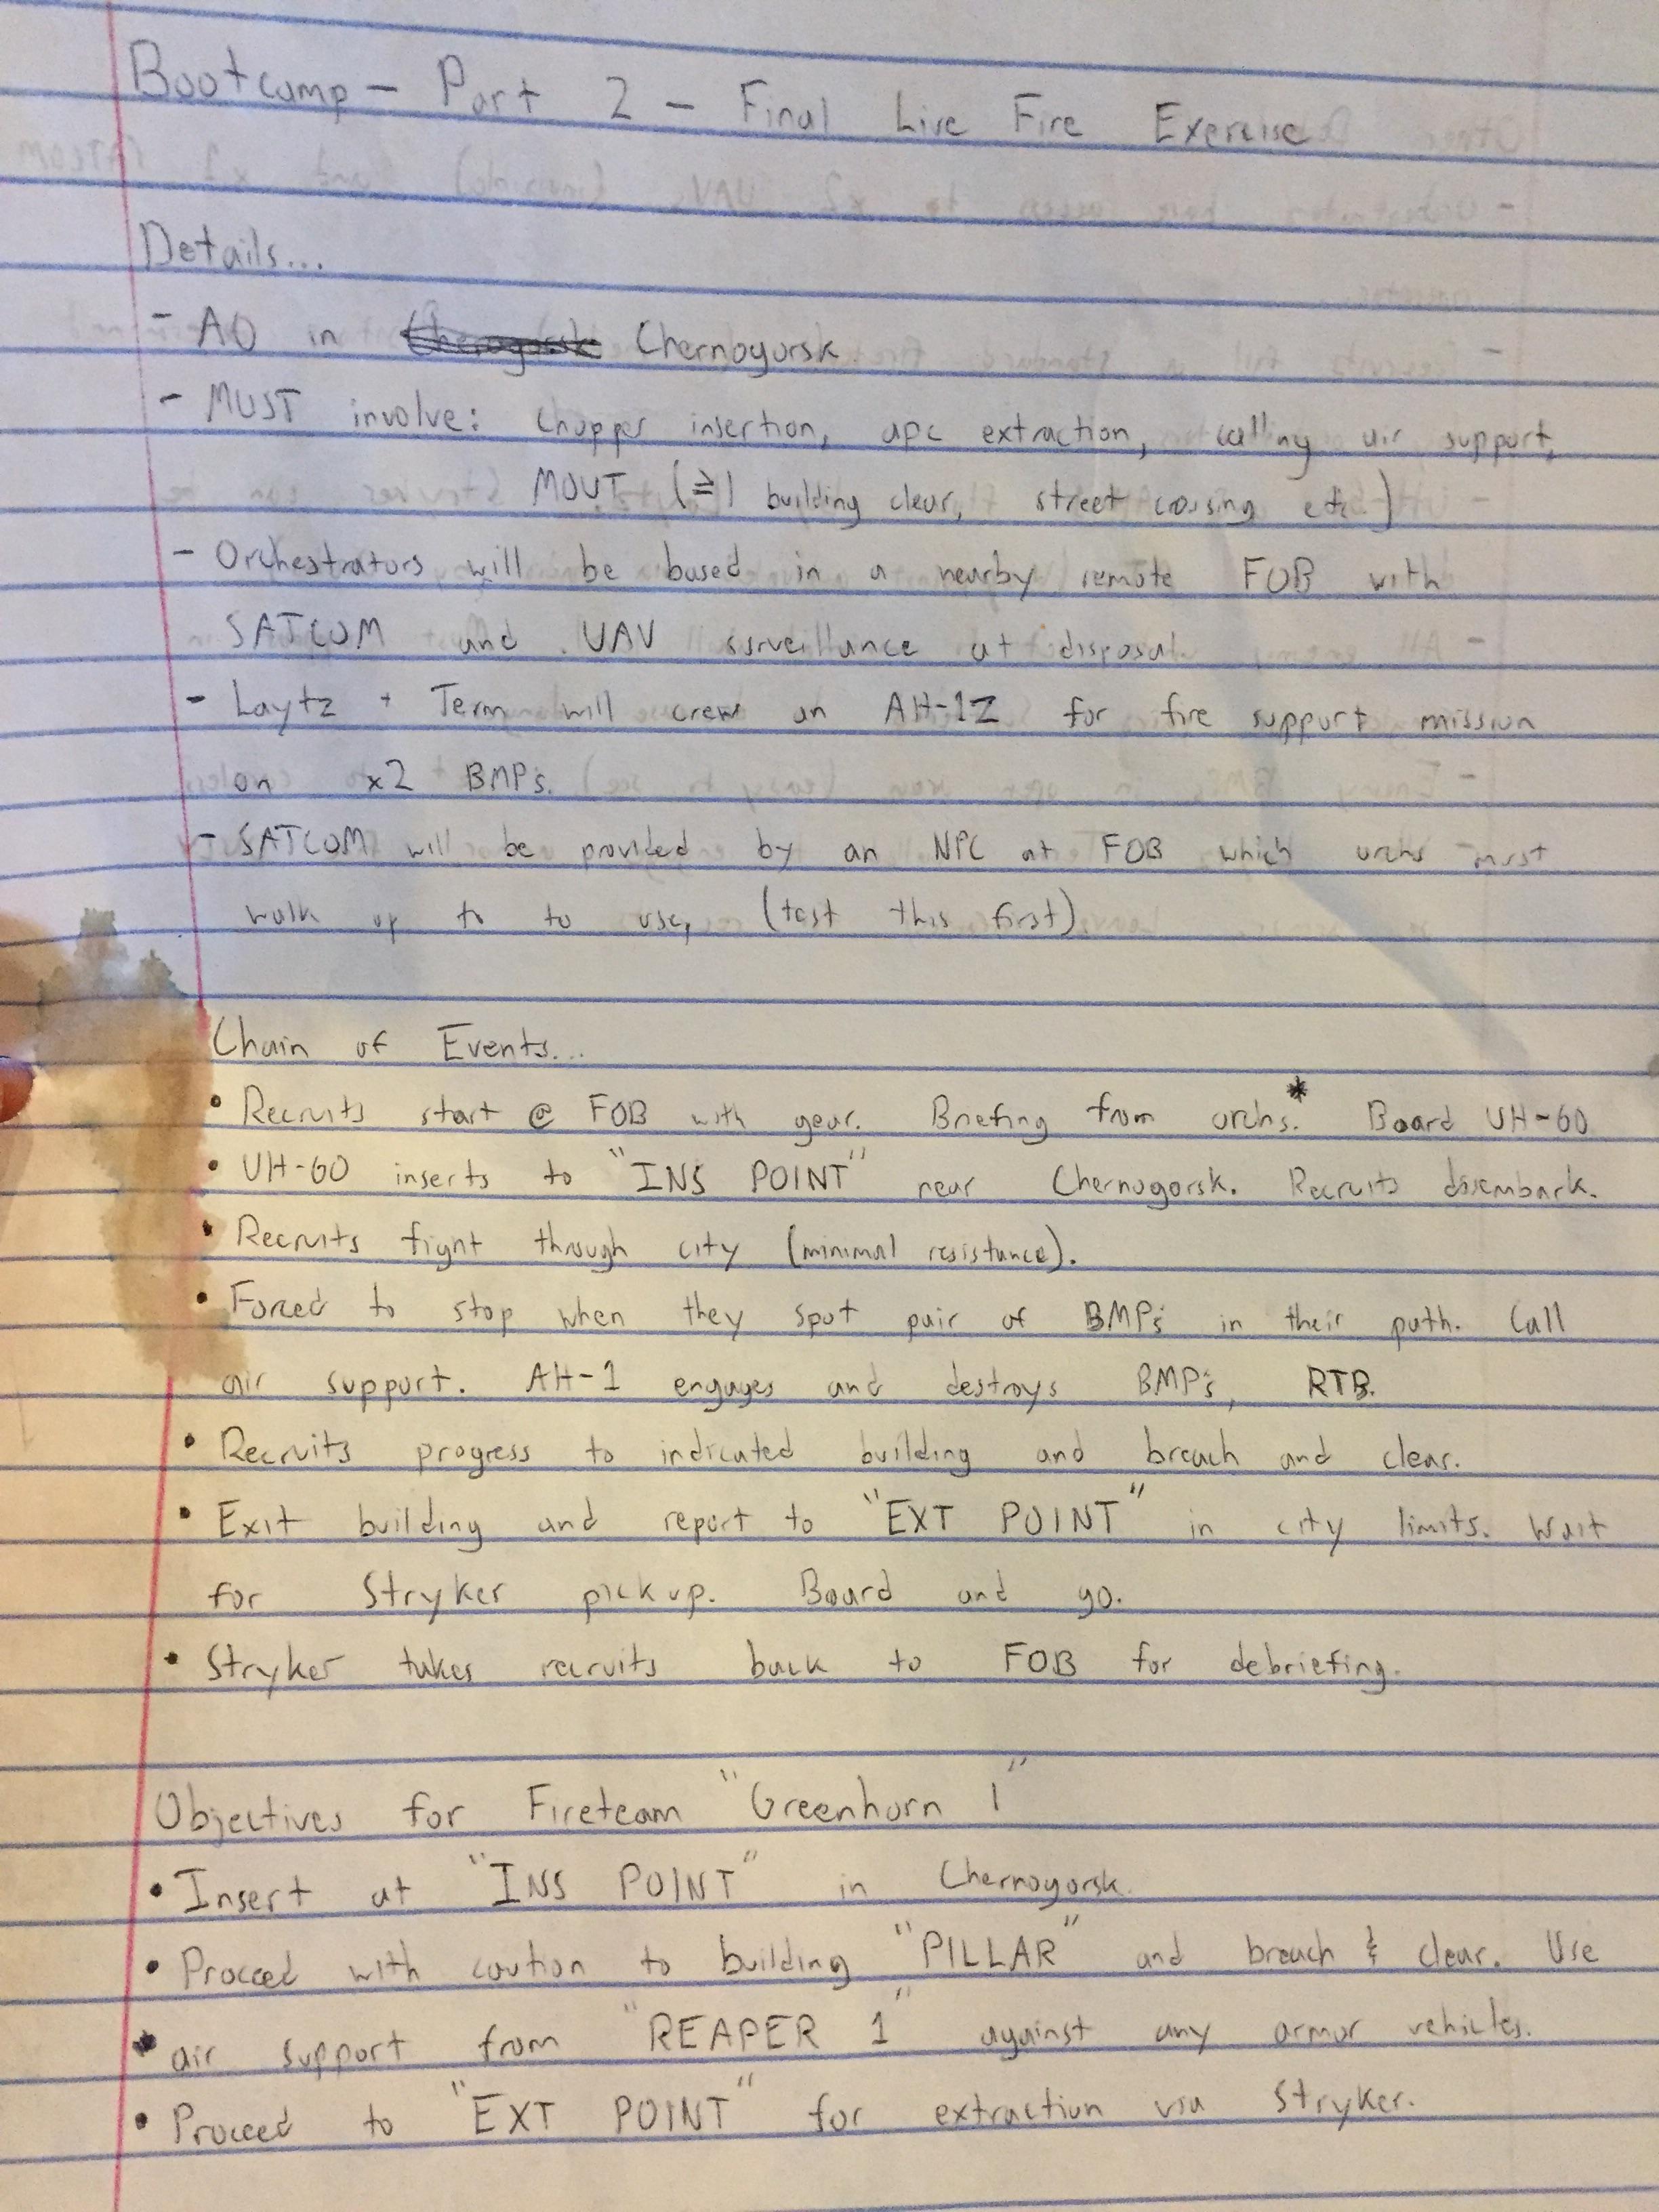 Bootcamp - Part 2 - Final Live Fire Exercise
Details...
- AO in Chernogorsk
- MUST involve: chopper insertion, apc extraction, calling air support,
MOUT (≥1 building clear, street cossing etc.)
- Orchestrators will be based in a nearby remote FOB with
SATCOM and UAV surveillance at disposal.
- Laytz + Term will crew an AH-1Z for fire support mission
on x2 BMP's.
- SATCOM will be provided by an NPC at FOB which orchs must
walk up to to use, (test this first)
Chain of Events...
• Recruits start @ FOB with gear. Briefing from orchs.* Board UH-60
• UH-60 inserts to "INS POINT" near Chernogorsk. Recruits disembark.
• Recruits fight through city (minimal resistance).
• Forced to stop when they spot pair of BMP's in their path. Call
air support. AH-1 engages and destroys BMP's, RTB.
• Recruits progress to indicated building and breach and clear.
• Exit building and report to "EXT POINT" in city limits. Wait
for Stryker pickup. Board and go.
• Stryker takes recruits back to FOB for debriefing.
Objectives for Fireteam "Greenhorn 1"
• Insert at "INS POINT" in Chernogorsk.
• Proceed with caution to building "PILLAR" and breach & clear. Use
* air support from "REAPER 1" against any armor vehicles.
• Proceed to "EXT POINT" for extraction via Stryker.